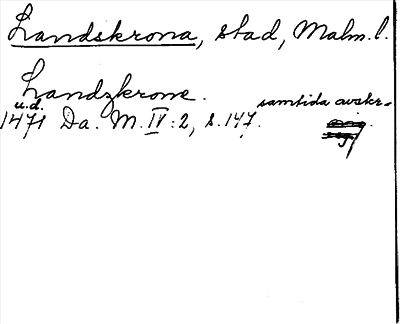 Landskrona, stad, Malm. l.
Landzkrone.
u.d. samtida avskr.
1471 Da. M. IV:2, s. 147.